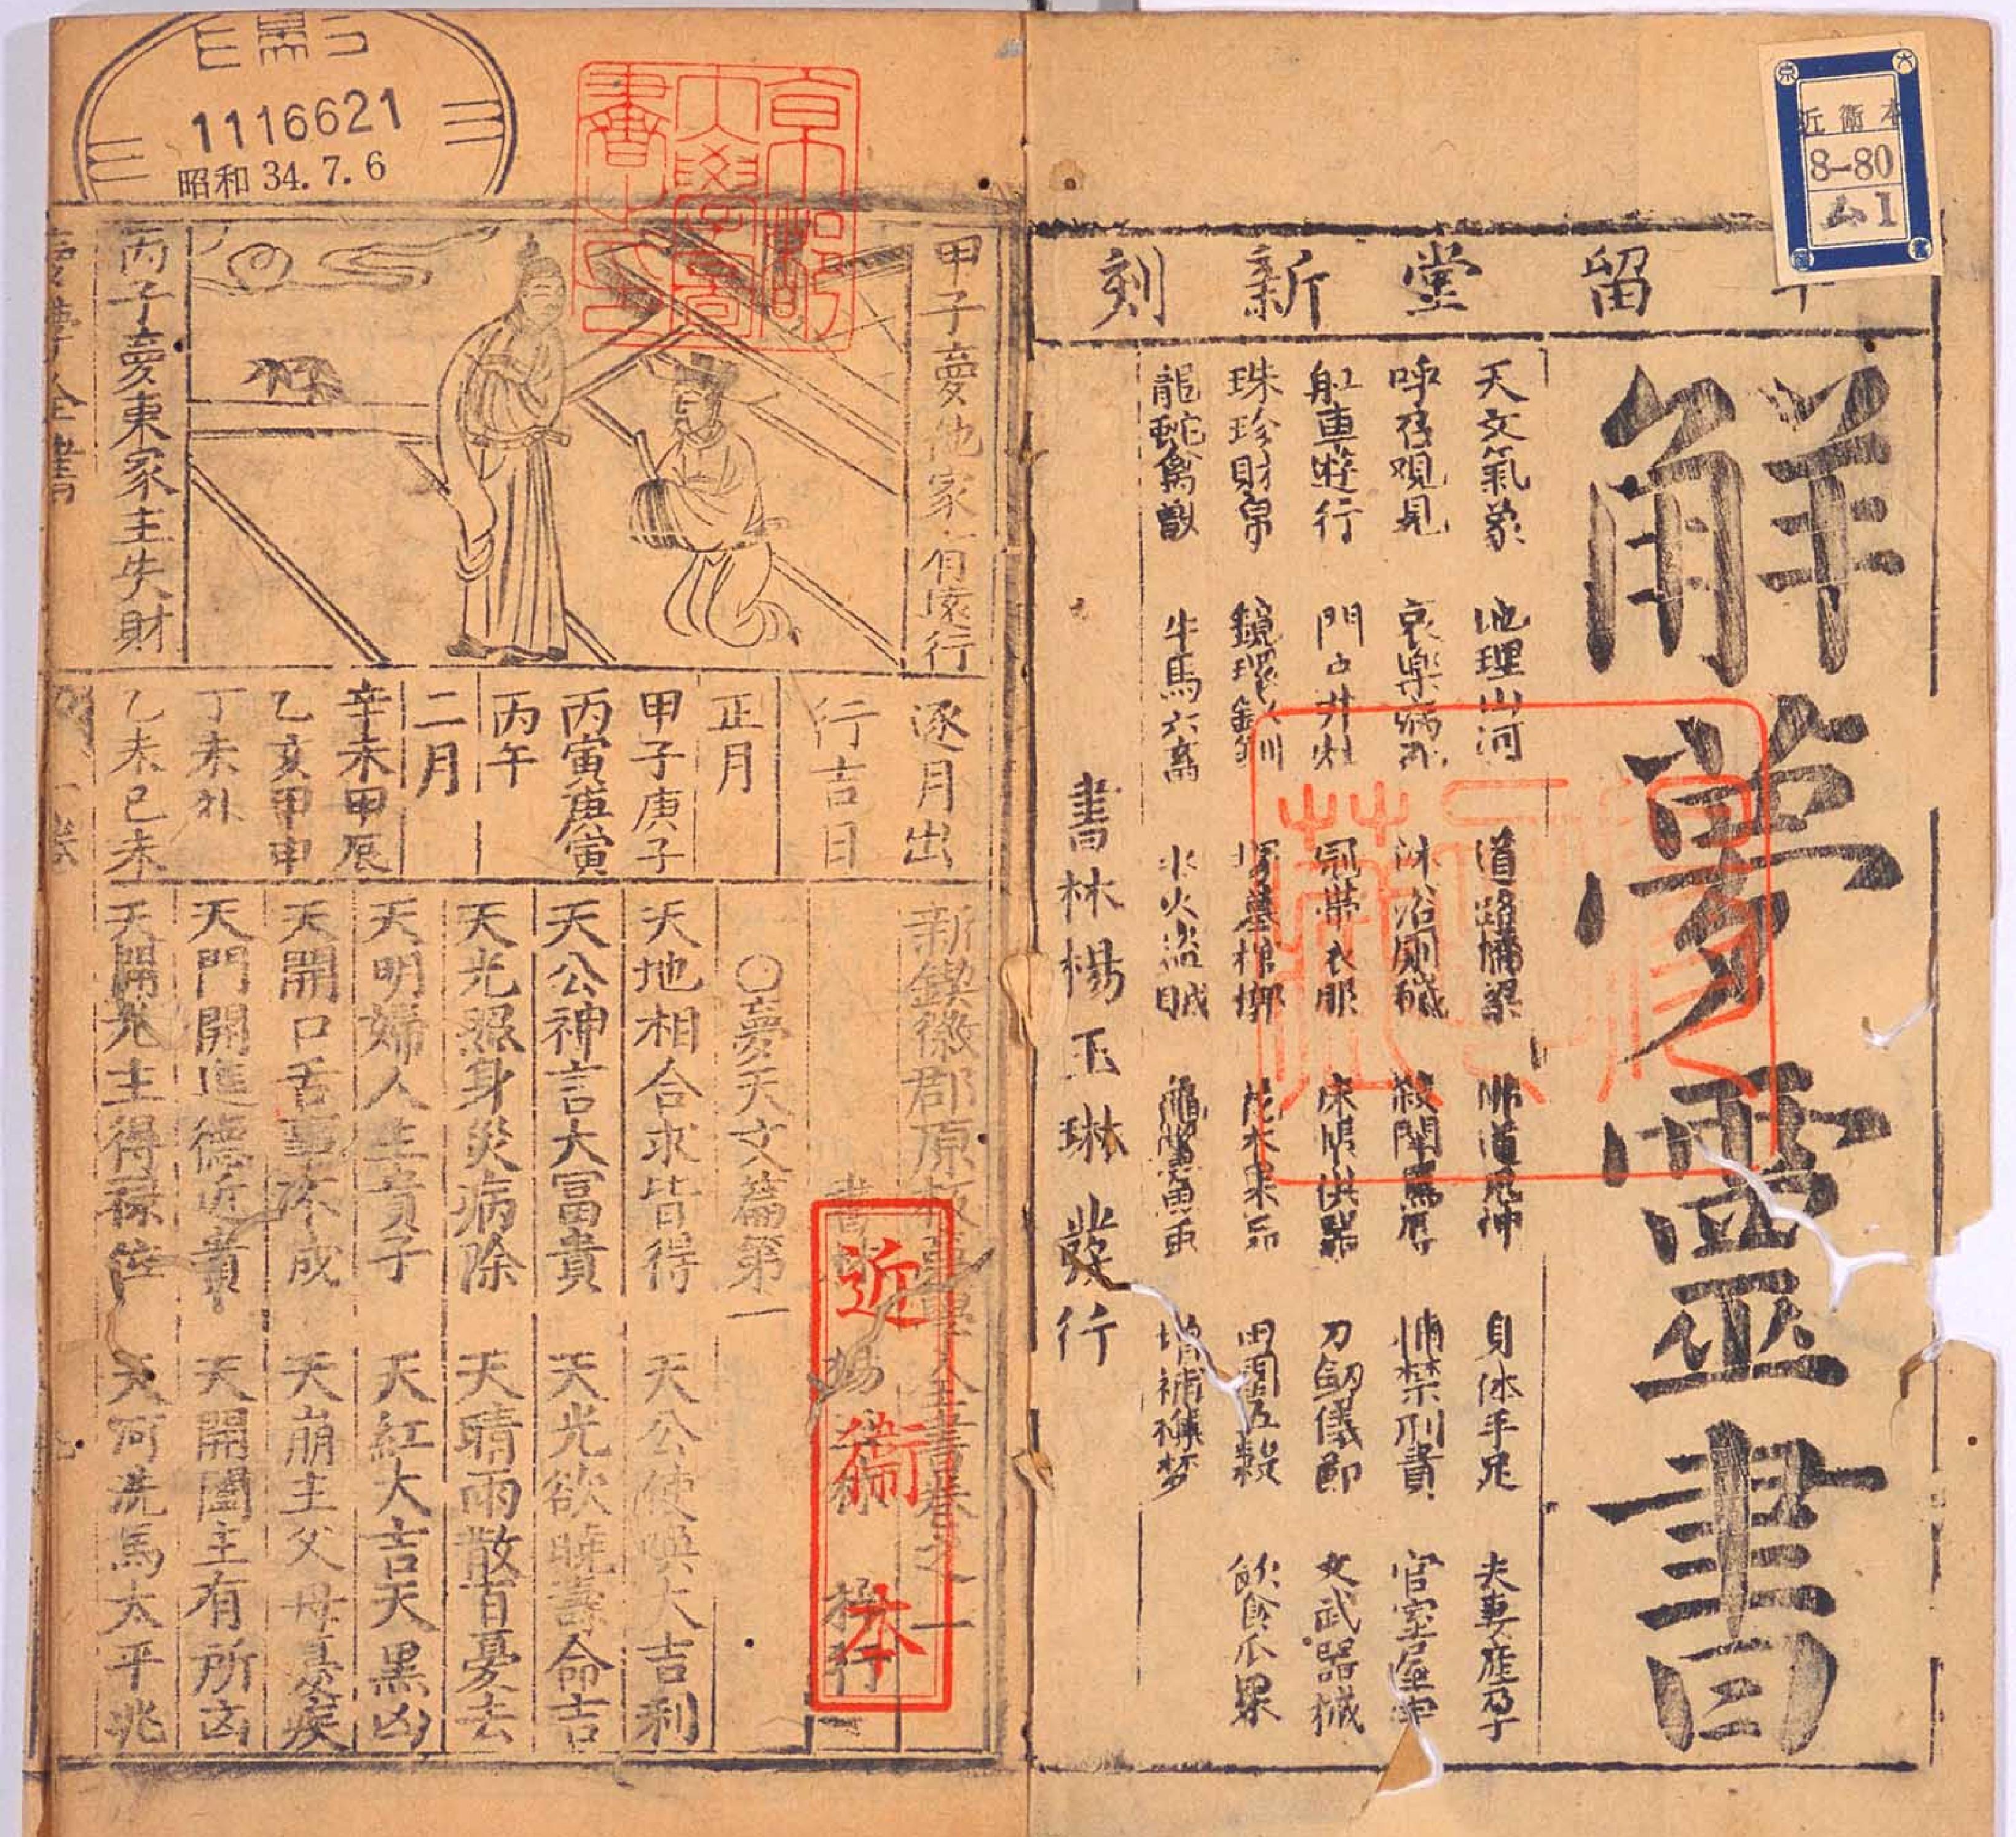 近衛本
8-80
ム1
留堂新刻
解夢靈書
天文氣象 地理山河 道路橋梁 身体手足 夫妻産孕
呼召覌見 哀樂病死 沐浴厠穢 殺鬪罵辱 捕禁刑責 官室屋宇
舡車遊行 門戶井灶 冠帶衣服 床帳供器 刀劍儀節 文武器械
珠珍財帛 鏡環釵釧 塚墓棺槨 花木果品 田園五穀 飲食瓜果
龍蛇禽獸 牛馬六畜 水火盜賊 增補襍梦
書林楊玉琳發行
京都大學圖書之印
1116621
昭和34.7.6
甲子夢他家人有遠行
丙子夢東家主失財
逐月出
行吉日
正月
甲子庚子
丙寅庚寅
丙午
二月
辛未甲辰
乙亥甲申
丁未
乙未己未
新鍥徽郡原板夢學全書卷之一
近衛本
○夢天文篇第一
天地相合求皆得 天公使喚大吉利
天公神言大冨貴 天光欲曉壽命吉
天光照身災病除 天晴雨散百憂去
天明婦人生貴子 天紅大吉天黑凶
天開口舌事不成 天崩主父母憂疾
天門開進德近貴 天開闔主有所凶
天開光主得祿位 天河洗馬太平兆
夢學全書